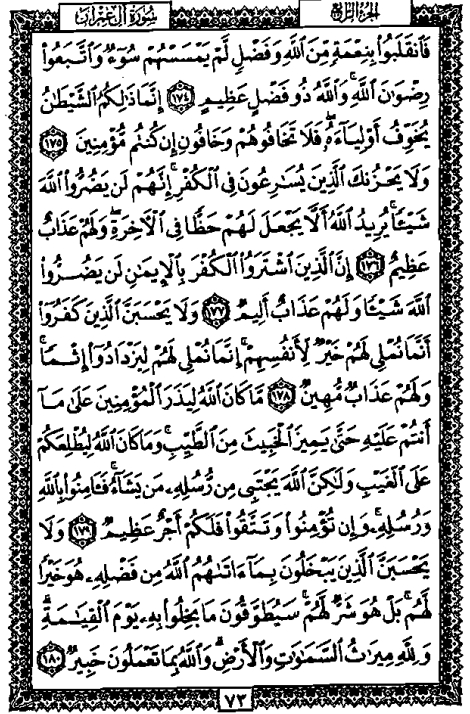 سُورَةُ آلِ عِمْرَانَ
الجُزْءُ الرَّابِعُ
فَٱنقَلَبُوا۟ بِنِعْمَةٍ مِّنَ ٱللَّهِ وَفَضْلٍ لَّمْ يَمْسَسْهُمْ سُوٓءٌ وَٱتَّبَعُوا۟
رِضْوَٰنَ ٱللَّهِ ۗ وَٱللَّهُ ذُو فَضْلٍ عَظِيمٍ ١٧٤ إِنَّمَا ذَٰلِكُمُ ٱلشَّيْطَٰنُ
يُخَوِّفُ أَوْلِيَآءَهُۥ فَلَا تَخَافُوهُمْ وَخَافُونِ إِن كُنتُم مُّؤْمِنِينَ ١٧٥
وَلَا يَحْزُنكَ ٱلَّذِينَ يُسَٰرِعُونَ فِى ٱلْكُفْرِ ۚ إِنَّهُمْ لَن يَضُرُّوا۟ ٱللَّهَ
شَيْـًٔا ۗ يُرِيدُ ٱللَّهُ أَلَّا يَجْعَلَ لَهُمْ حَظًّا فِى ٱلْـَٔاخِرَةِ ۖ وَلَهُمْ عَذَابٌ
عَظِيمٌ ١٧٦ إِنَّ ٱلَّذِينَ ٱشْتَرَوُا۟ ٱلْكُفْرَ بِٱلْإِيمَٰنِ لَن يَضُرُّوا۟
ٱللَّهَ شَيْـًٔا وَلَهُمْ عَذَابٌ أَلِيمٌ ١٧٧ وَلَا يَحْسَبَنَّ ٱلَّذِينَ كَفَرُوٓا۟
أَنَّمَا نُمْلِى لَهُمْ خَيْرٌ لِّأَنفُسِهِمْ ۚ إِنَّمَا نُمْلِى لَهُمْ لِيَزْدَادُوٓا۟ إِثْمًا ۚ
وَلَهُمْ عَذَابٌ مُّهِينٌ ١٧٨ مَّا كَانَ ٱللَّهُ لِيَذَرَ ٱلْمُؤْمِنِينَ عَلَىٰ مَآ
أَنتُمْ عَلَيْهِ حَتَّىٰ يَمِيزَ ٱلْخَبِيثَ مِنَ ٱلطَّيِّبِ ۗ وَمَا كَانَ ٱللَّهُ لِيُطْلِعَكُمْ
عَلَى ٱلْغَيْبِ وَلَٰكِنَّ ٱللَّهَ يَجْتَبِى مِن رُّسُلِهِۦ مَن يَشَآءُ ۖ فَـَٔامِنُوا۟ بِٱللَّهِ
وَرُسُلِهِۦ ۚ وَإِن تُؤْمِنُوا۟ وَتَتَّقُوا۟ فَلَكُمْ أَجْرٌ عَظِيمٌ ١٧٩ وَلَا
يَحْسَبَنَّ ٱلَّذِينَ يَبْخَلُونَ بِمَآ ءَاتَىٰهُمُ ٱللَّهُ مِن فَضْلِهِۦ هُوَ خَيْرًا
لَّهُم ۖ بَلْ هُوَ شَرٌّ لَّهُمْ ۖ سَيُطَوَّقُونَ مَا بَخِلُوا۟ بِهِۦ يَوْمَ ٱلْقِيَٰمَةِ ۗ
وَلِلَّهِ مِيرَٰثُ ٱلسَّمَٰوَٰتِ وَٱلْأَرْضِ ۗ وَٱللَّهُ بِمَا تَعْمَلُونَ خَبِيرٌ ١٨٠
٧٣